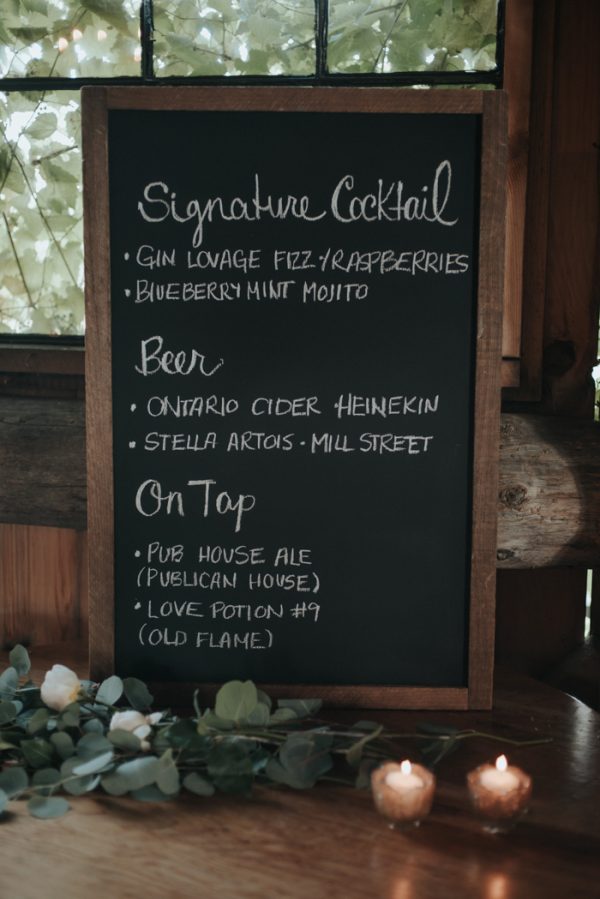 Signature Cocktail
• GIN LOVAGE FIZZ • /RASPBERRIES
• BLUEBERRY MINT MOJITO
Beer
• ONTARIO CIDER • HEINEKIN
• STELLA ARTOIS • MILL STREET
On Tap
• PUB HOUSE ALE
(PUBLICAN HOUSE)
• LOVE POTION #9
(OLD FLAME)